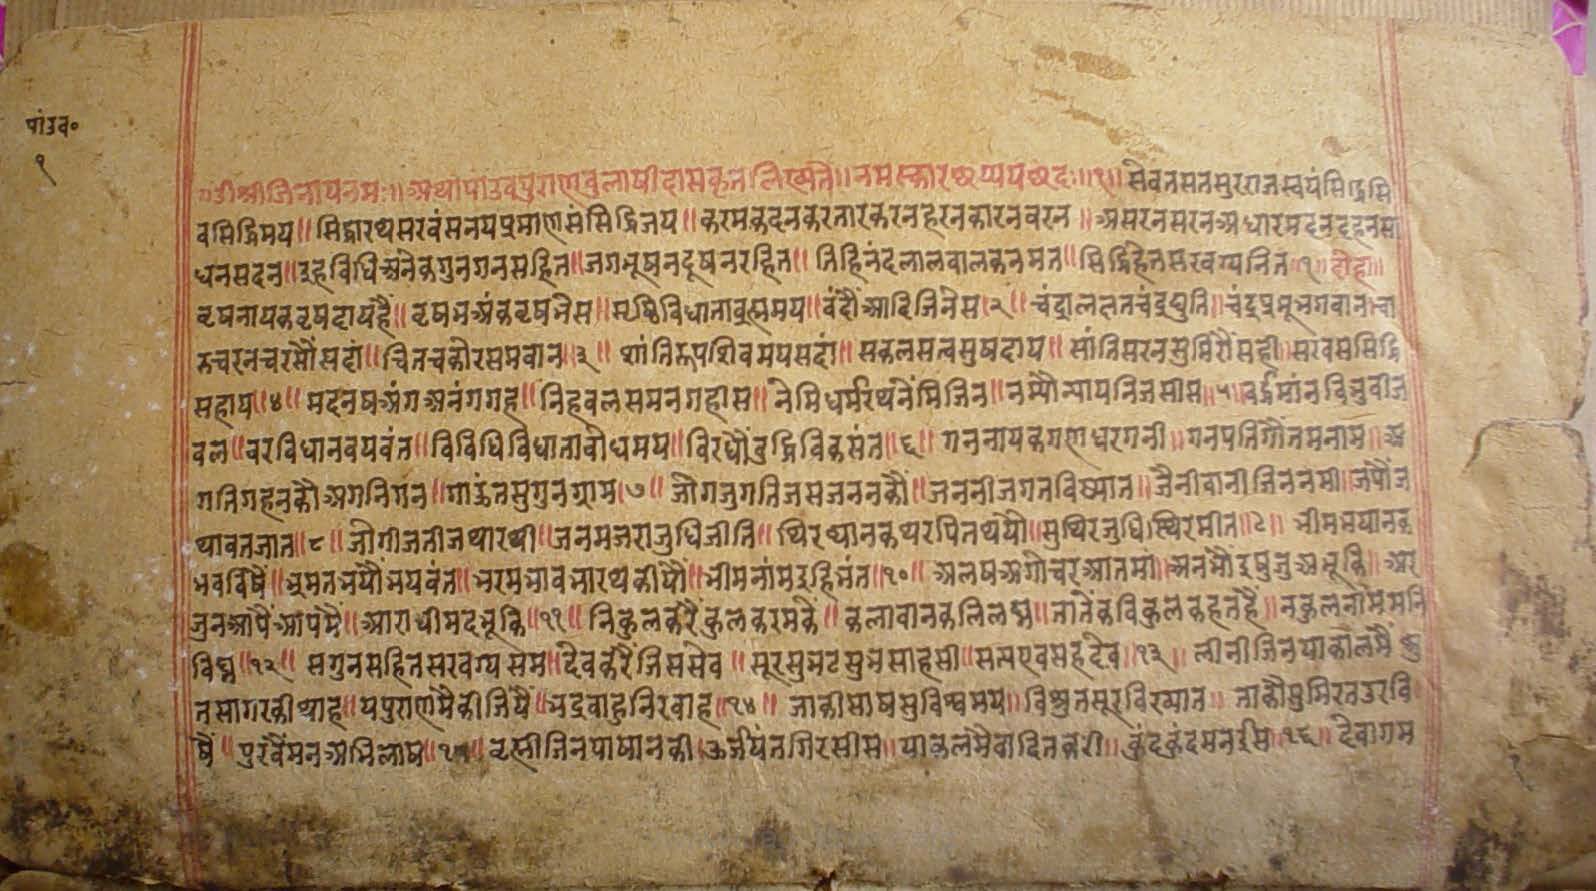 पांडव०
१
॥श्रीजिनायनमः॥ अथपांडवपुराणबुलाषीदासकृतलिख्यते॥ नमस्कारछप्पयछंदः॥१॥ सेवतसतसुरराजस्वयंसिद्धिसि
वसिद्धिमय॥ सिद्धारथसरवंसनयप्रमाणसंसिद्धिजय॥ करमकदनकरतारकरनहरनकारनचरन॥ असरनसरनअधारमदनदहनसा
धनसदन॥ इहविधिअनेकगुनगनसहित॥ जगभूषनदूषनरहित॥ तिहिनंदलालबालकनमत॥ सिद्धिहेतसरवग्यनित॥१॥ दोहा॥
वृषनायकवृषदायहै॥ वृषभअंकवृषभेस॥ सृष्टिविधातावृषमय॥ वंदौंआदिजिनेस॥२॥ चंद्रालक्षतचंद्रद्युति॥ चंद्रप्रभूभगवान॥ चा
रुचरनचरचौंसदा॥ चितचकोरसमवान॥३॥ शांतिरूपशिवमयसदा॥ सकलसत्वसुषदाय॥ सांतिसरनसुमिरौंसही॥ सरवससिद्धि
सहाय॥४॥ मदनषअंगअनंगगह॥ निहबलसमनगहीस॥ नेमिधर्मरथनेंमिजिन॥ नम्यौन्यायनिजसीस॥५॥ वर्द्धमांनविनुबीज
बल॥ वरविधानवयवंत॥ विविधिविधातावोधमय॥ विरधौबुद्धिविकसंत॥६॥ गननायकगणधरगनी॥ गनपतिगौतमनाम॥ अ
गतिगहनकौअगनिगन॥ गाऊंतसुगुनग्राम॥७॥ जोगजुगतिजसजननकौं॥ जननीजगतविष्यात॥ जैनीवानीजिननमी॥ जंपौंज
थावतजात॥८॥ जोगीजतीजथारथी॥ जनमजराजुधिजीति॥ थिरथ्यानकथरपितथयौ॥ सुथिरजुधिस्थिरमीत॥९॥ भीमभयानक
भवविषैं॥ भ्रमतभयौंभयवंत॥ भरमभावभारथकीयौ॥ भीमनांमइहिमंत॥१०॥ अलषअगोचरआतमा॥ अनभौइषुजुअभूकि॥ अर
जुनआपैंआपमैं॥ आराधीमदभूकि॥११॥ निकुलकरैंकुलकरमके॥ कलावानकलिलघ्न॥ तातैंकविकुलकहतहै॥ नकुलनांममुनि
विघ्न॥१२॥ सगुनसहितसरवग्यसम॥ देवकरैंजिससेव॥ सूरसुभटसुभसाहसी॥ सत्यएवसहदेव॥१३॥ लीनीजिनयाकालमैं॥ श्रु
तसागरकीथाह॥ यपुराणमैकीजियैं॥ भद्रबाहुनिरवाह॥१४॥ जाकीसाषसुविश्वमय॥ विश्रुतसूरविख्यात॥ ताकौसुमिरतउरवि
षैं॥ पुरवैंमनअभिलाष॥१५॥ रस्तीजिनपाषानकी॥ ऊर्जयंतगिरसीस॥ याकलमैवादितकरी॥ कुंदकुंदमनईस॥१६॥ देवागम